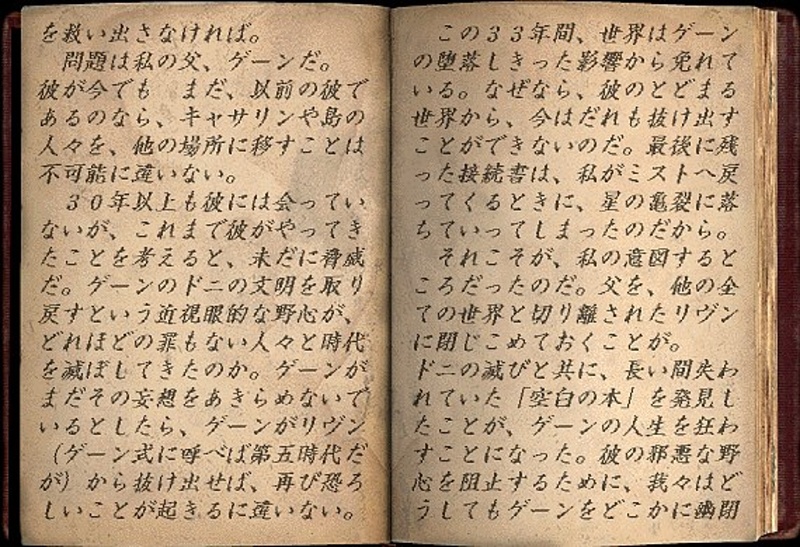 を救い出さなければ。
　問題は私の父、ゲーンだ。
彼が今でも　まだ、以前の彼で
あるのなら、キャサリンや島の
人々を、他の場所に移すことは
不可能に違いない。
　３０年以上も彼には会ってい
ないが、これまで彼がやってき
たことを考えると、未だに脅威
だ。ゲーンのドニの文明を取り
戻すという近視眼的な野心が、
どれほどの罪もない人々と時代
を滅ぼしてきたのか。ゲーンが
まだその妄想をあきらめないで
いるとしたら、ゲーンがリヴン
（ゲーン式に呼べば第五時代だ
が）から抜け出せば、再び恐ろ
しいことが起きるに違いない。
　この３３年間、世界はゲーン
の堕落しきった影響から免れて
いる。なぜなら、彼のとどまる
世界から、今はだれも抜け出す
ことができないのだ。最後に残
った接続書は、私がミストへ戻
ってくるときに、星の亀裂に落
ちていってしまったのだから。
　それこそが、私の意図すると
ころだったのだ。父を、他の全
ての世界と切り離されたリヴン
に閉じこめておくことが。
ドニの滅びと共に、長い間失わ
れていた「空白の本」を発見し
たことが、ゲーンの人生を狂わ
すことになった。彼の邪悪な野
心を阻止するために、我々はど
うしてもゲーンをどこかに幽閉